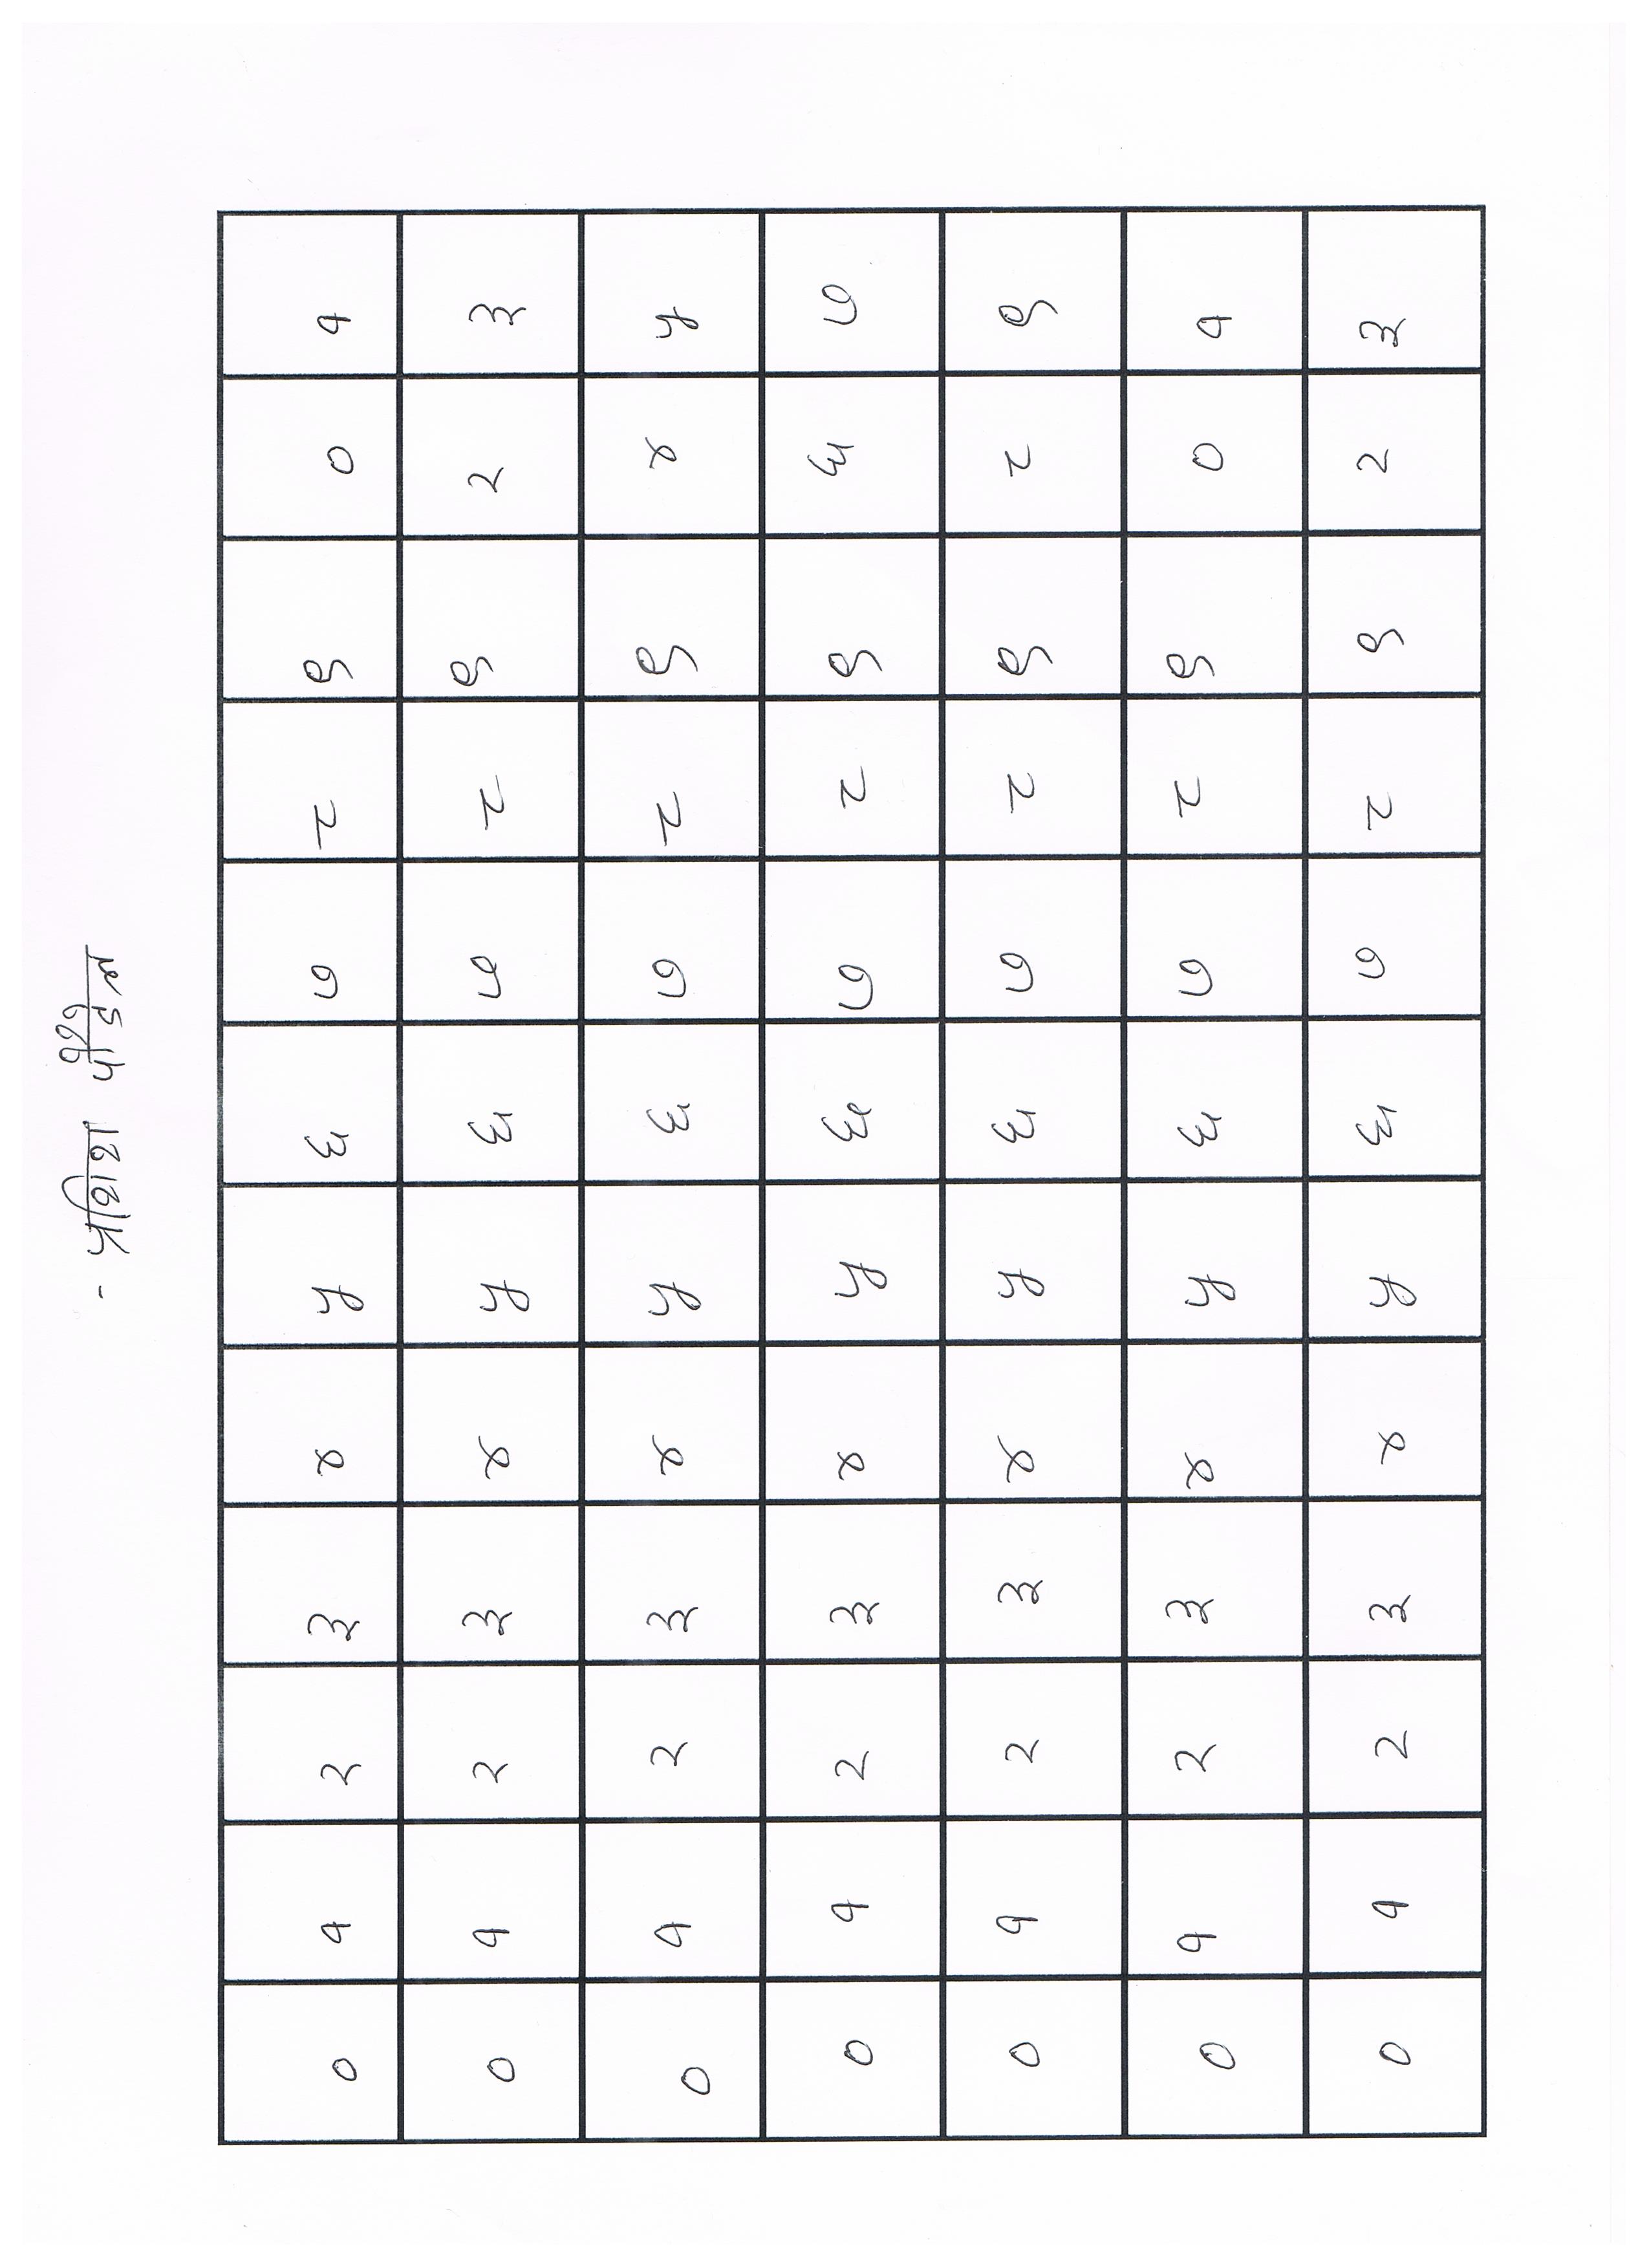 - प्रविधा पौडेल
० १ २ ३ ४ ५ ६ ७ ८ ९ ० १
० १ २ ३ ४ ५ ६ ७ ८ ९ २ ३
० १ २ ३ ४ ५ ६ ७ ८ ९ ४ ५
० १ २ ३ ४ ५ ६ ७ ८ ९ ६ ७
० १ २ ३ ४ ५ ६ ७ ८ ९ ८ ९
० १ २ ३ ४ ५ ६ ७ ८ ९ ० १
० १ २ ३ ४ ५ ६ ७ ८ ९ २ ३